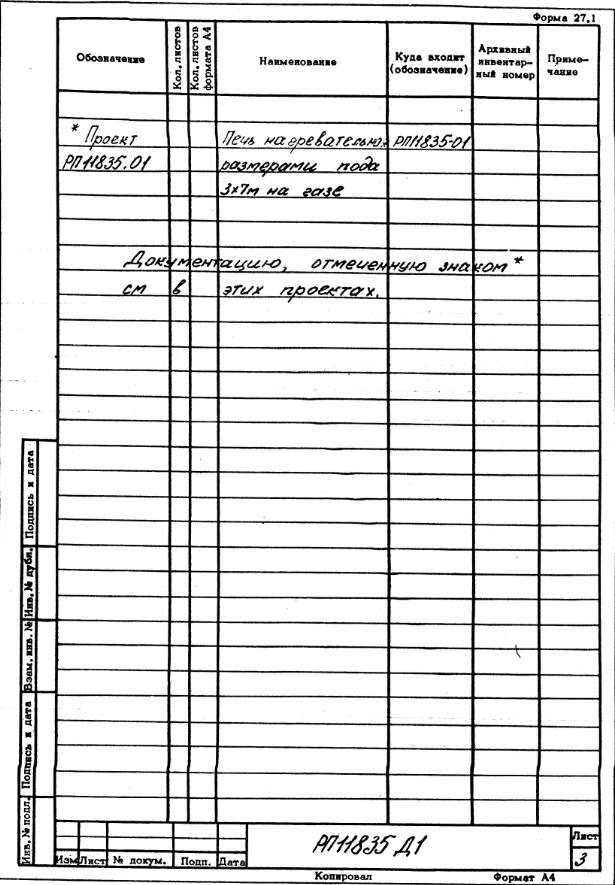 Форма 27.1
Обозначение
Кол. листов
Кол. листов
формата А4
Наименование
Куда входит
(обозначение)
Архивный
инвентар-
ный номер
Приме-
чание
* Проект Печь нагревательная РП11835-01
РП11835.01 размерами пода
3х7м на газе
Документацию, отмеченную знаком *
см в этих проектах.
Подпись и дата
Инв. № дубл.
Взам. инв. №
Подпись и дата
Инв. № подл.
Изм Лист № докум. Подп. Дата
РП11835 Д1
Лист
3
Копировал Формат А4